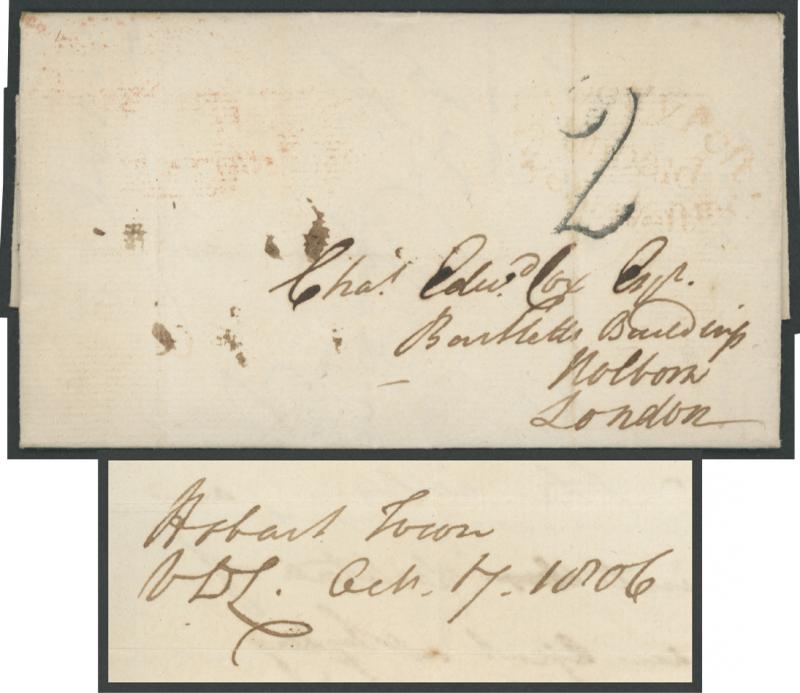 2
Chas. Edwd. Cox Esqr.
Bartletts Buildings
Holborn
London
Hobart Town
VDL. Octr. 17. 1806